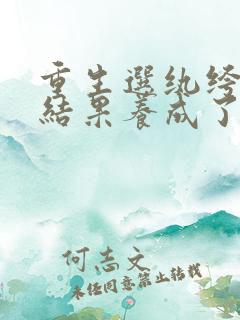 重生選紈绔
結果養成了
何志文
未任同意禁止转载